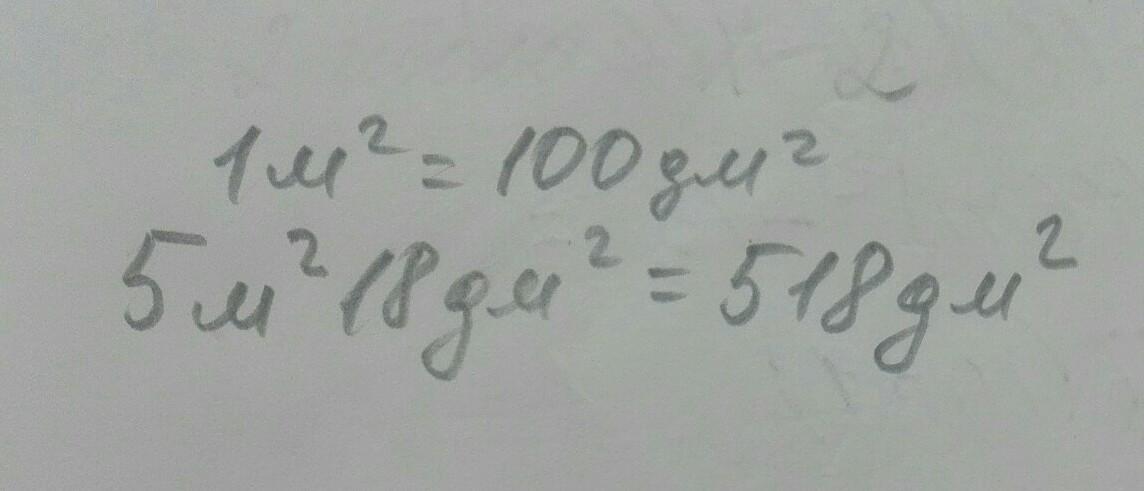 1 м² = 100 дм²
5 м² 18 дм² = 518 дм²